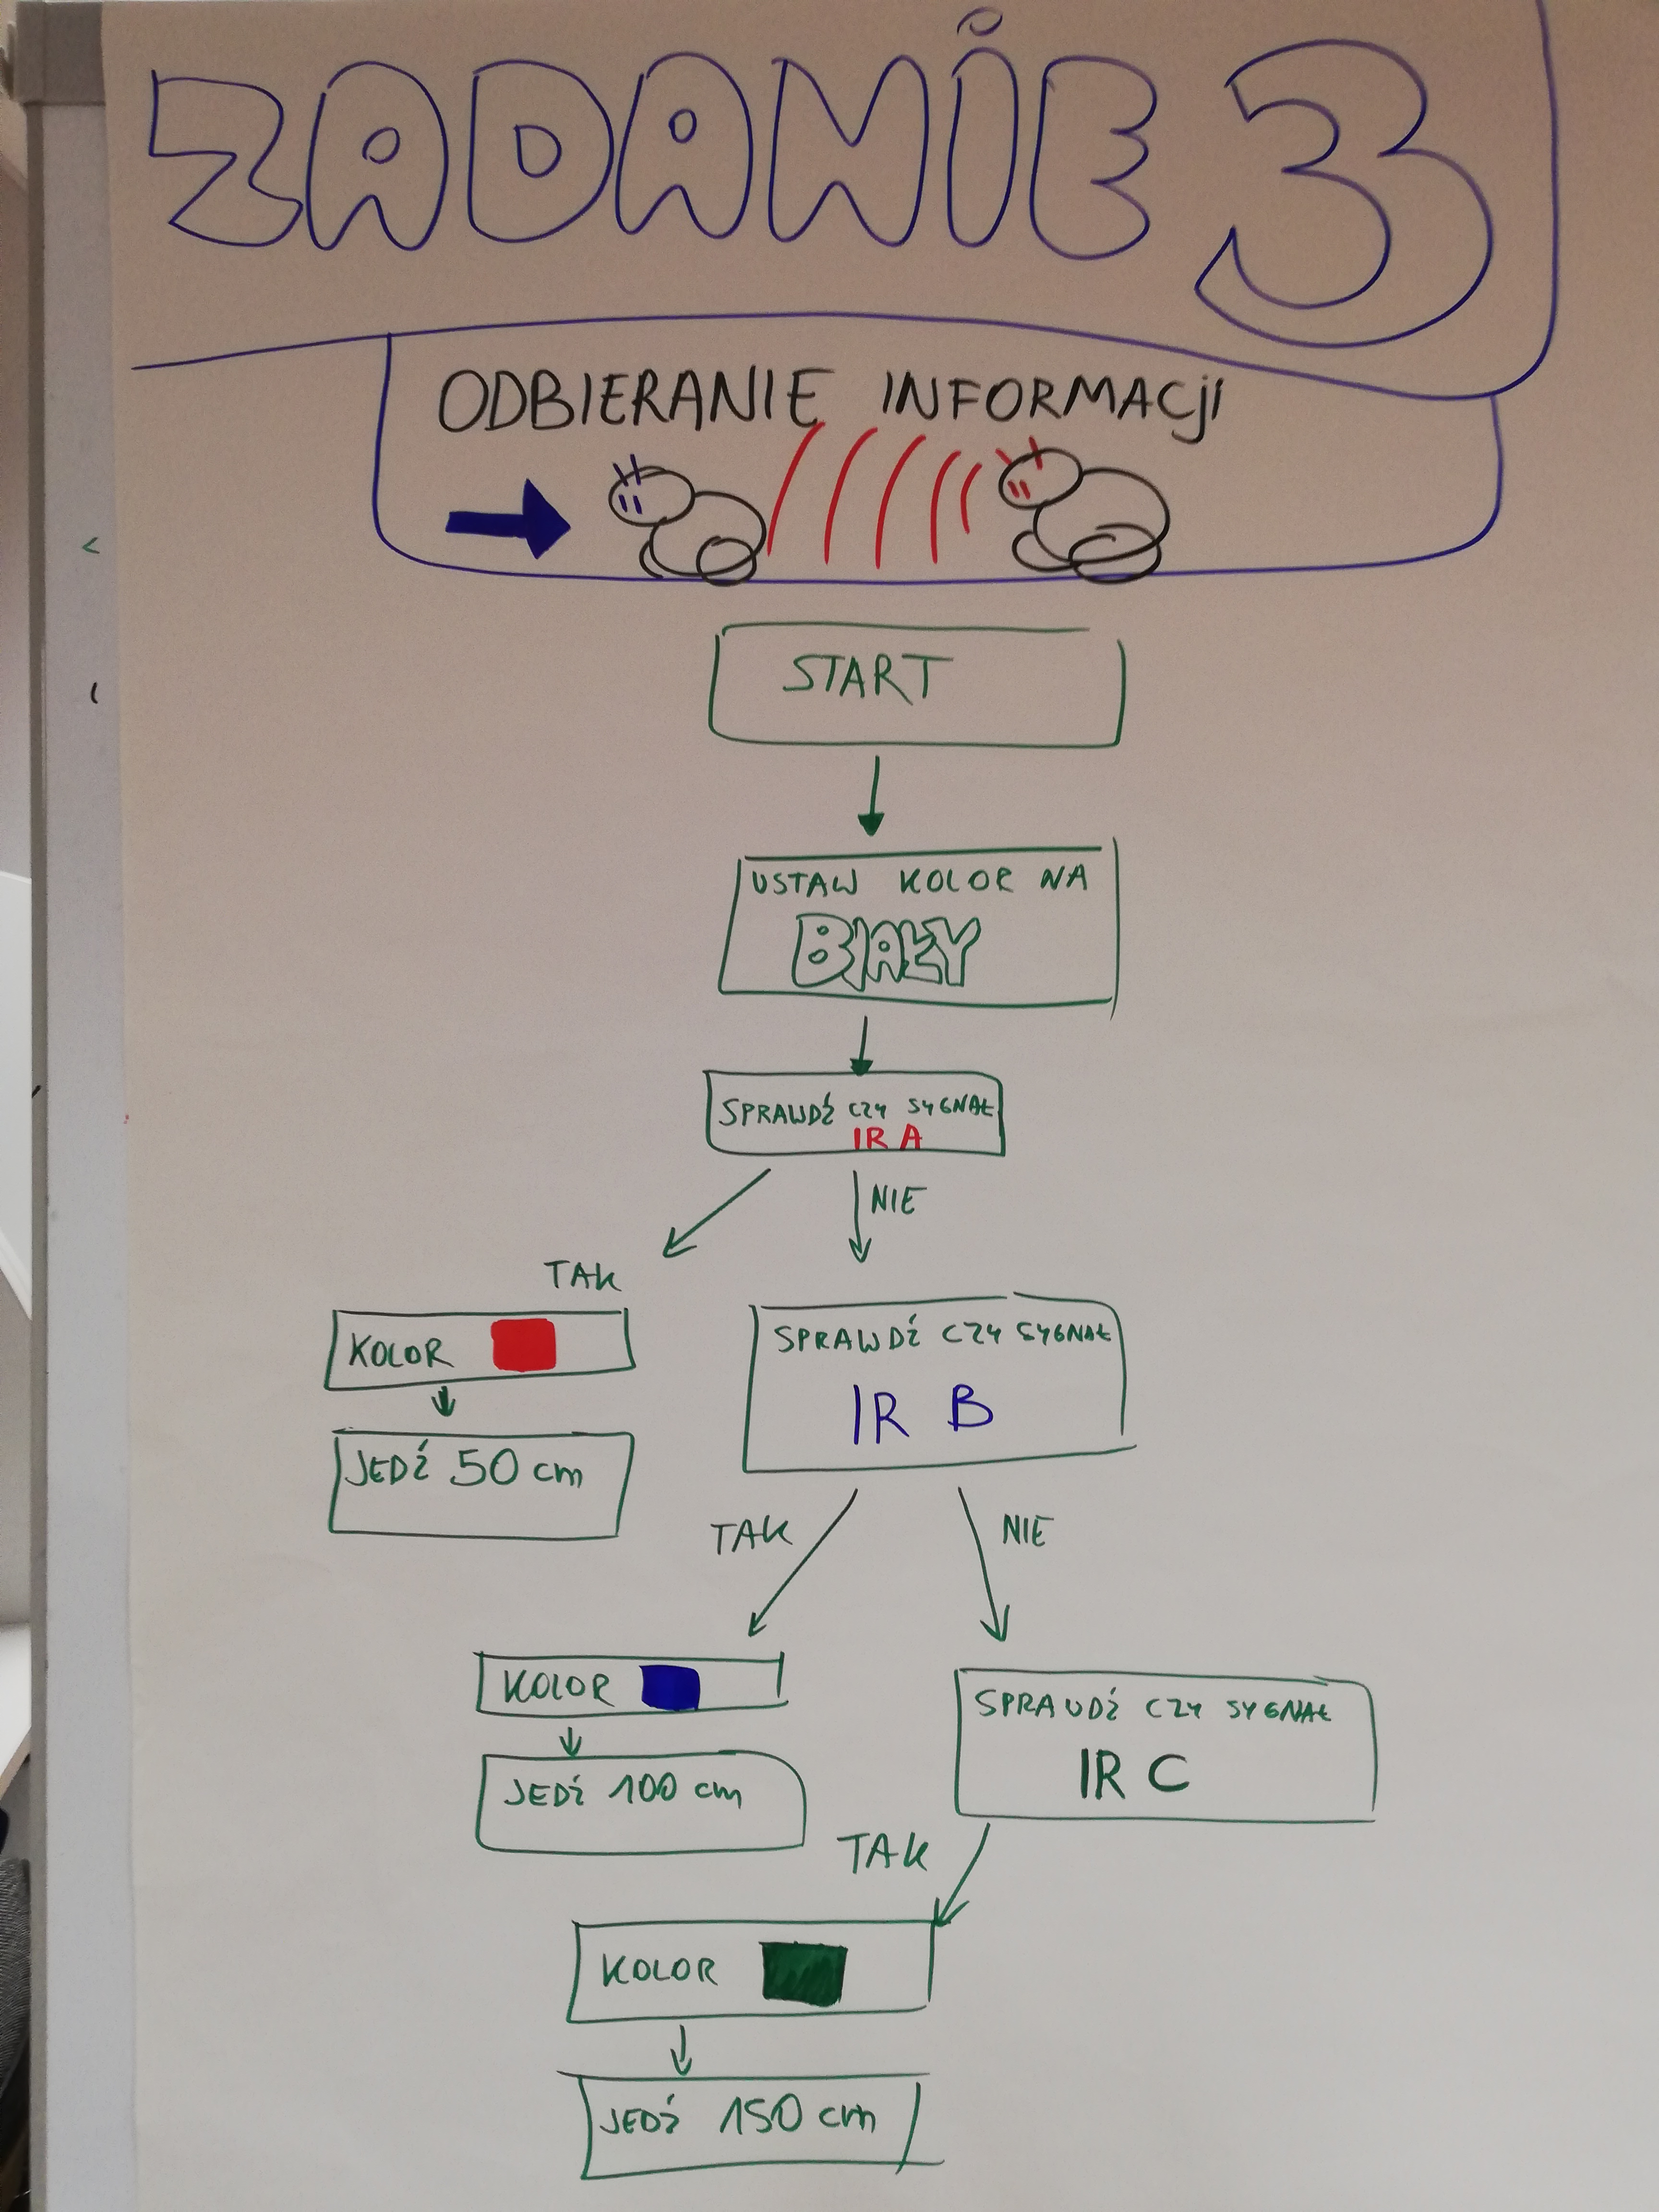 ZADANIE 3
ODBIERANIE INFORMACJI
START
USTAW KOLOR NA
BIAŁY
SPRAWDŹ CZY SYGNAŁ
IR A
NIE
TAK
KOLOR
JEDŹ 50 cm
SPRAWDŹ CZY SYGNAŁ
IR B
TAK
NIE
KOLOR
JEDŹ 100 cm
SPRAWDŹ CZY SYGNAŁ
IR C
TAK
KOLOR
JEDŹ 150 cm